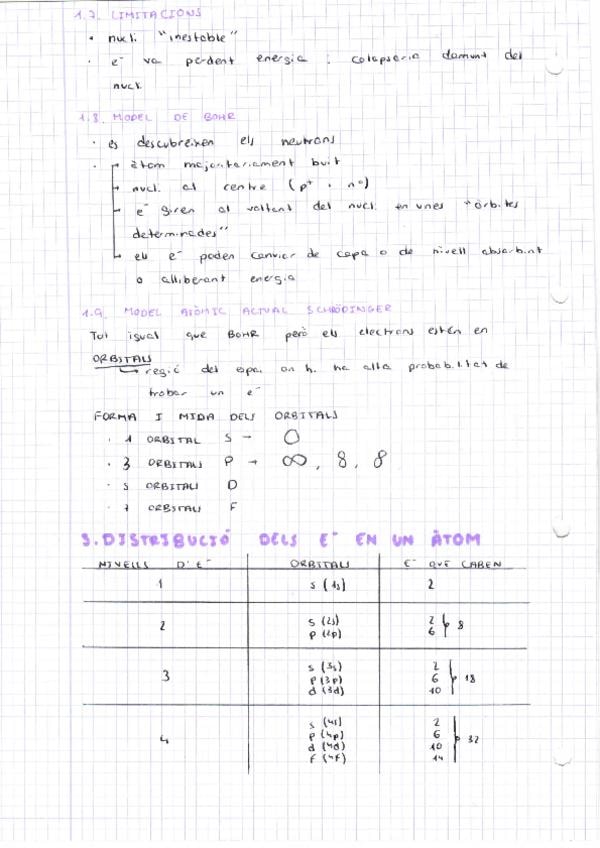 1.7. LIMITACIONS
• nucli "inestable"
• e⁻ va perdent energia i colapsaria damunt del
nucli
1.8. MODEL DE BOHR
• es descubreixen els neutrons
• → àtom majoritariament buit
→ nucli al centre (p⁺ i n⁰)
→ e⁻ giren al voltant del nucli en unes "òrbites
determinades"
→ els e⁻ poden canviar de capa o de nivell absorbint
o alliberant energia
1.9. MODEL ATÒMIC ACTUAL SCHRÖDINGER
Tot igual que BOHR però els electrons estan en
ORBITALS
→ regió del espai on hi ha alta probabilitat de
trobar un e⁻
FORMA I MIDA DELS ORBITALS
• 1 ORBITAL S →
• 3 ORBITALS P → , ,
• 5 ORBITALS D
• 7 ORBITALS F
3. DISTRIBUCIÓ DELS E⁻ EN UN ÀTOM
NIVELLS D'E⁻ ORBITALS E⁻ QUE CABEN
1 s (1s) 2
2 s (2s) 2
p (2p) 6 8
s (3s) 2
3 p (3p) 6 18
d (3d) 10
s (4s) 2
p (4p) 6
4 d (4d) 10 32
f (4f) 14